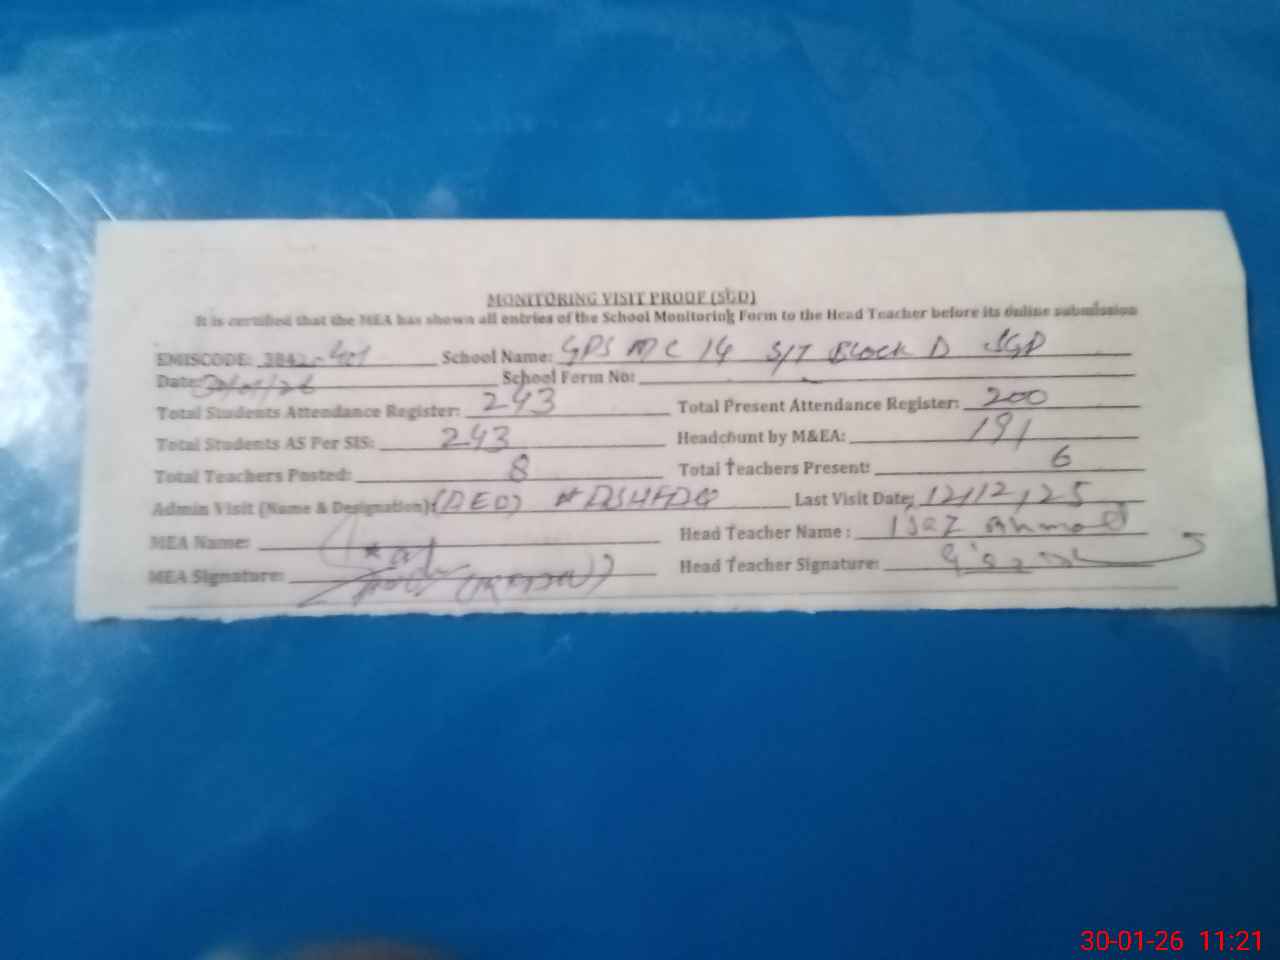 MONITORING VISIT PROOF (SGD)
It is certified that the MEA has shown all entries of the School Monitoring Form to the Head Teacher before its online submission
EMISCODE: 3842- School Name: GPS MC 14 S/T Block D SGD
Date: School Form No:
Total Students Attendance Register: 243 Total Present Attendance Register: 200
Total Students AS Per SIS: 243 Headcount by M&EA: 191
Total Teachers Posted: 8 Total Teachers Present: 6
Admin Visit (Name & Designation) (AEO) Last Visit Date: 12/12/25
MEA Name: Head Teacher Name : Ijaz Ahmad
MEA Signature: Head Teacher Signature:
30-01-26 11:21